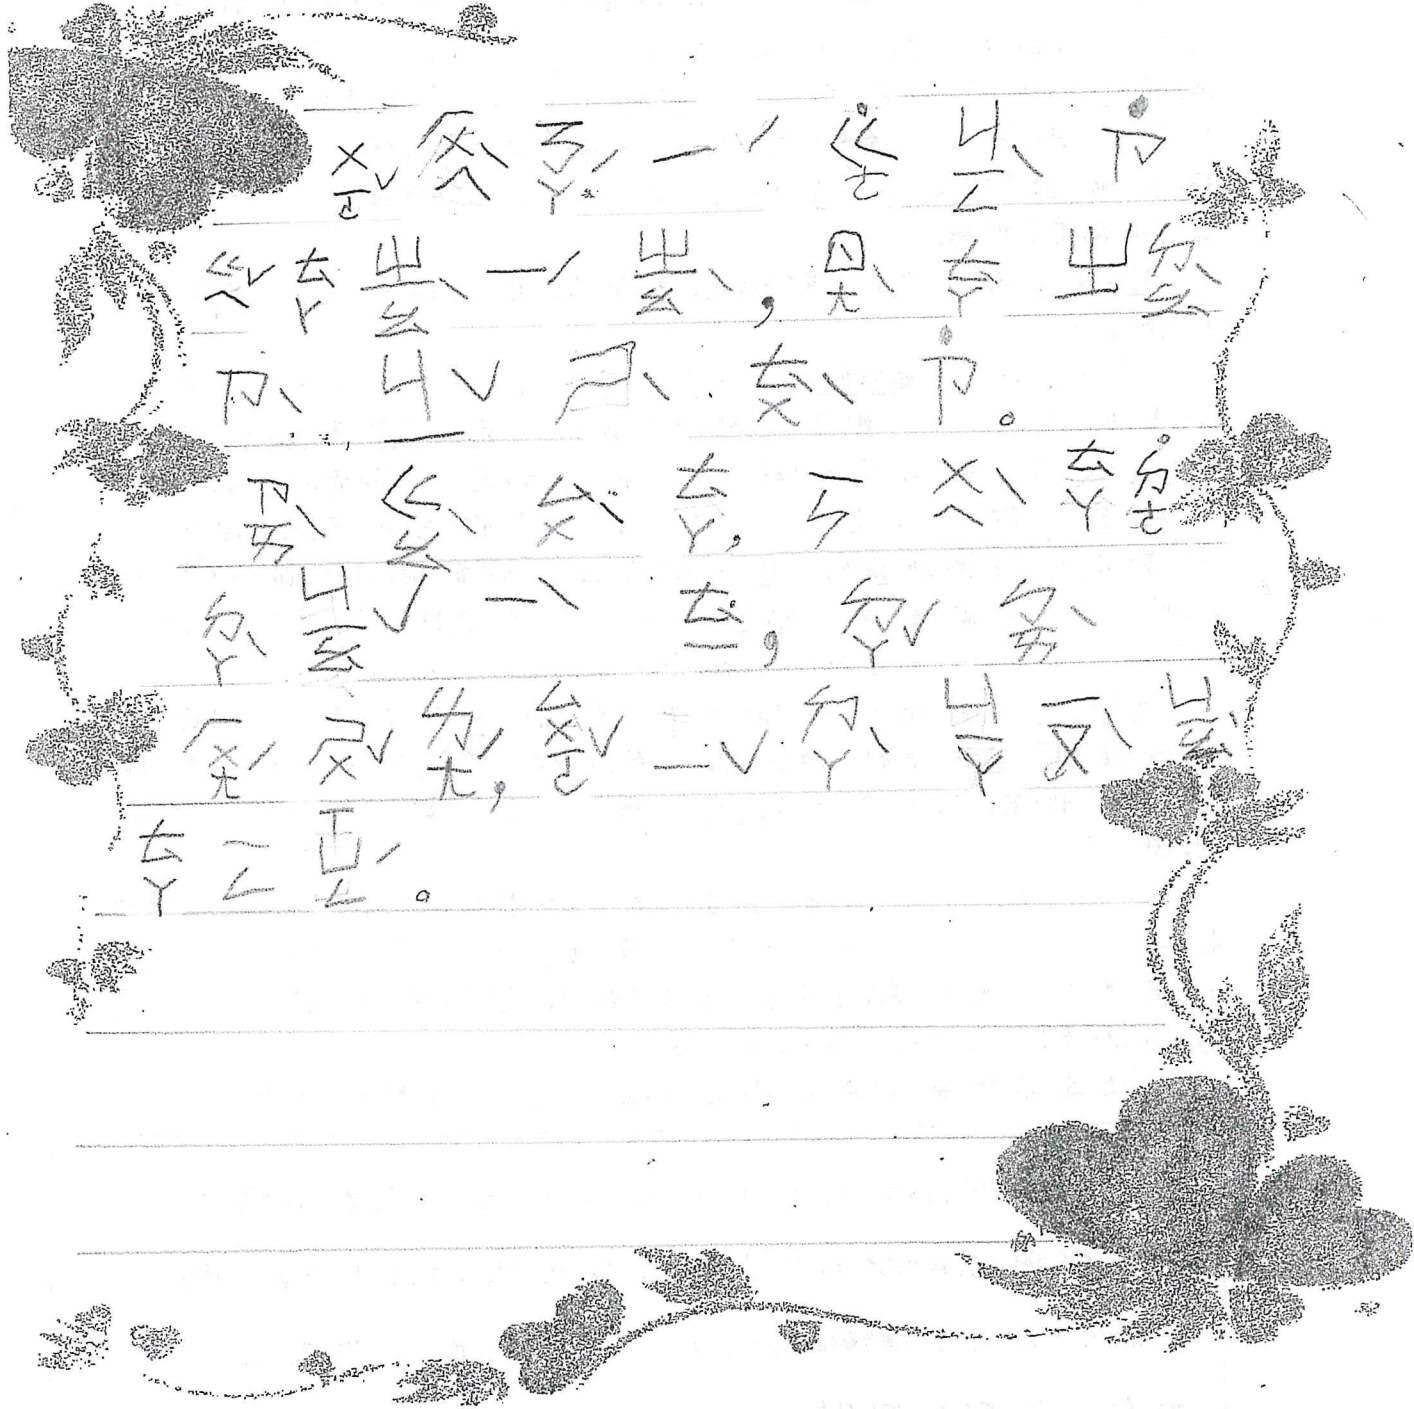 ㄨㄛˇ ㄏㄨㄟˋ ㄋㄚˊ ㄧˊ ˙ㄍㄜ ㄐㄧㄥˋ ˙ㄗ
ㄍㄟˇ ㄊㄚ ㄓㄠˋ ㄧˊ ㄓㄠˋ,ㄖㄤˋ ㄊㄚ ㄓ ㄉㄠˋ
ㄗˋ ㄐㄧˇ ㄕˋ ㄊㄨˋ ˙ㄗ。
ㄗㄞˋ ㄍㄠˋ ㄙㄨˋ ㄊㄚ,ㄧㄣ ㄨㄟˋ ㄊㄚ ˙ㄉㄜ
ㄉㄚˋ ㄐㄧㄠˇ ㄧˋ ㄊㄧ,ㄉㄚˇ ㄉㄞˋ
ㄏㄨㄤˊ ㄕㄨˇ ㄌㄤˊ,ㄙㄨㄛˇ ㄧˇ ㄉㄚˋ ㄐㄧㄚ ㄧㄡˋ ㄐㄧㄠˋ
ㄊㄚ ㄧㄥ ㄒㄩㄥˊ。